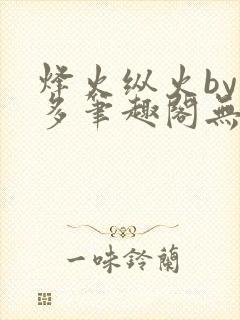 烽火纵火by
多笔趣阁無
一味鈴蘭